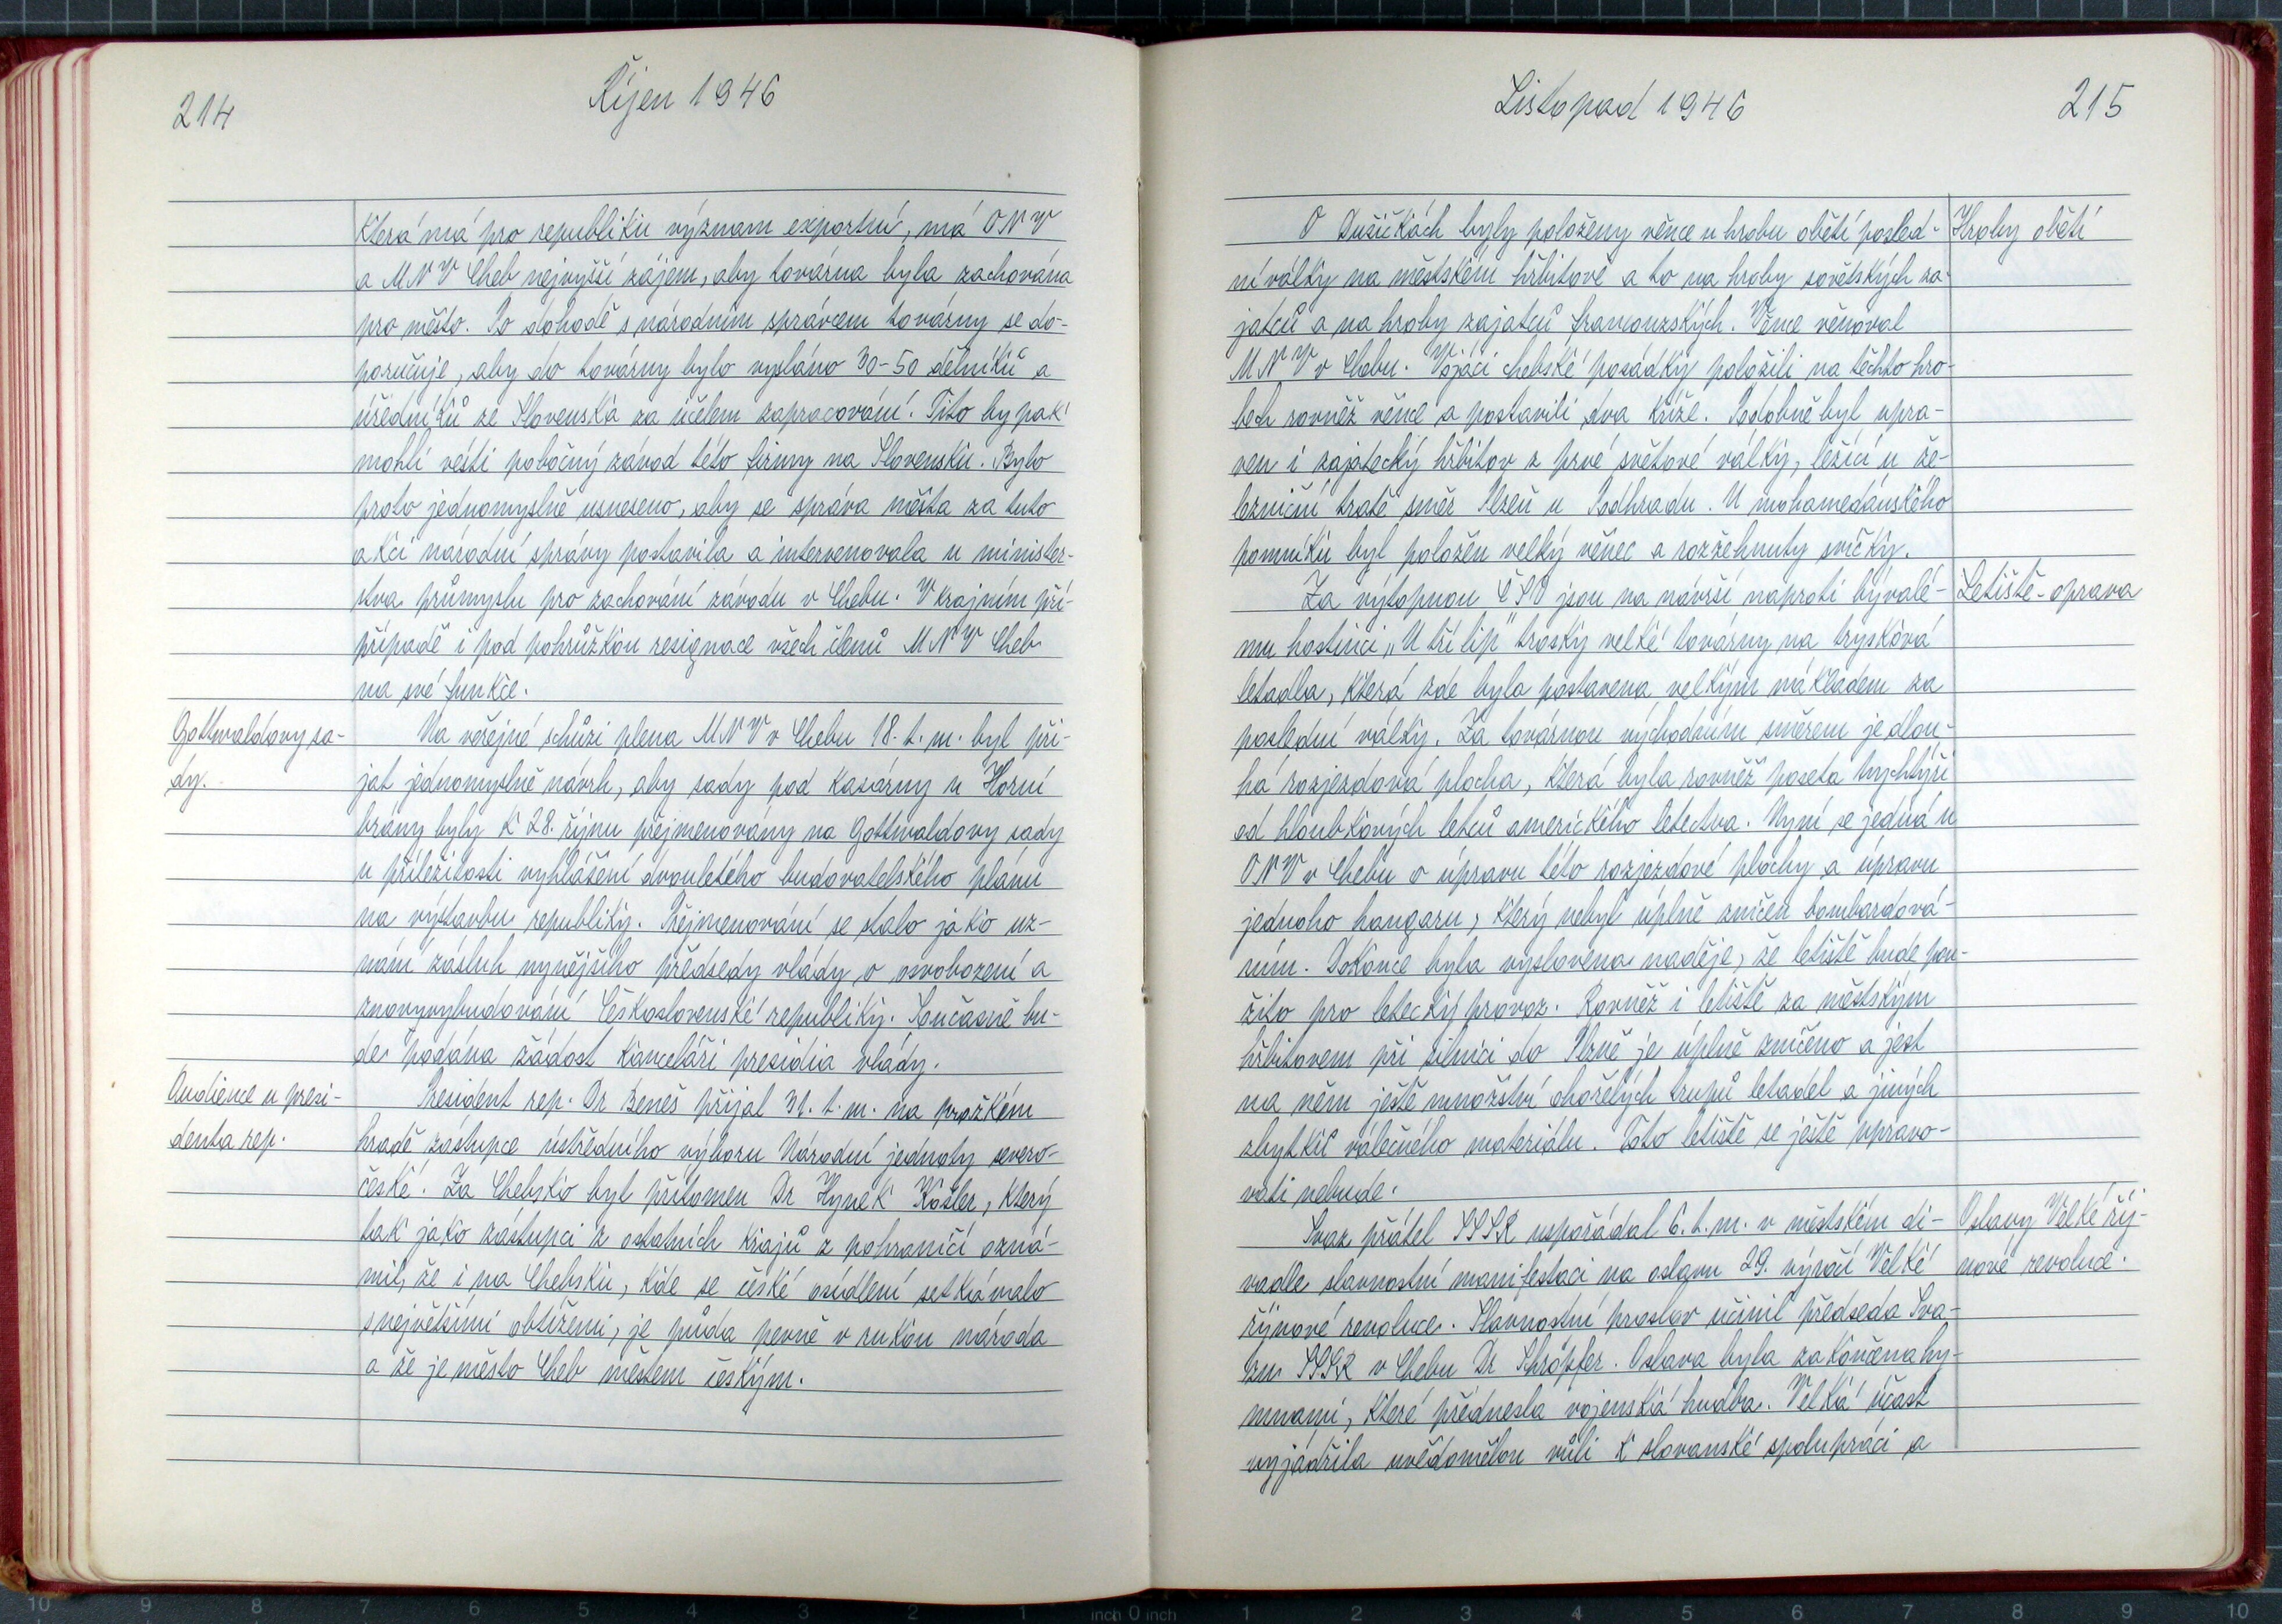 214
Říjen 1946
která má pro republiku význam exportní, má ONV
a MNV Cheb nejvyšší zájem, aby továrna byla zachována
pro město. Po dohodě s národním správcem továrny se do-
poručuje, aby do továrny bylo vysláno 30-50 dělníků a
úředníků ze Slovenska za účelem zapracování. Tito by pak
mohli vésti pobočný závod této firmy na Slovensku. Bylo
proto jednomyslně usneseno, aby se správa města za tuto
akci národní správy postavila a intervenovala u minister-
stva průmyslu pro zachování závodu v Chebu. V krajním pří-
případě i pod pohrůžkou resignace všech členů MNV Cheb
na své funkce.
Gottwaldovy sa-
dy.
Na veřejné schůzi plena MNV v Chebu 18. t. m. byl při-
jat jednomyslně návrh, aby sady pod kasárny u Horní
brány byly k 28. říjnu přejmenovány na Gottwaldovy sady
u příležitosti vyhlášení dvouletého budovatelského plánu
na výstavbu republiky. Přejmenování se stalo jako uz-
nání zásluh nynějšího předsedy vlády o osvobození a
znovuvybudování Československé republiky. Současně bu-
de podána žádost kanceláři presidia vlády.
Audience u presi-
denta rep.
President rep. Dr Beneš přijal 31. t. m. na pražském
hradě zástupce ústředního výboru Národní jednoty severo-
české. Za Chebsko byl přítomen Dr Hynek Kösler, který
tak jako zástupci z ostatních krajů z pohraničí ozná-
mil, že i na Chebsku, kde se české osídlení setkávalo
s největšími obtížemi, je půda pevně v rukou národa
a že je město Cheb městem českým.
Listopad 1946
215
O Dušičkách byly položeny věnce u hrobu obětí posled-
ní války na městském hřbitově a to na hroby sovětských za-
jatců a na hroby zajatců francouzských. Věnce věnoval
MNV v Chebu. Vojáci chebské posádky položili na těchto hro-
bech rovněž věnce a postavili dva kříže. Podobně byl upra-
ven i zajatecký hřbitov z prvé světové války, ležící u že-
lezniční tratě směr Plzeň u Podhradu. U mohamedánského
pomníku byl položen velký věnec a rozžehnuty svíčky.
Hroby obětí
Za výtopnou ČSD jsou na návrší naproti bývalé-
mu hostinci „U tří lip" trosky velké továrny na trysková
letadla, která zde byla postavena velkým nákladem za
poslední války. Za továrnou východním směrem je dlou-
há rozjezdová plocha, která byla rovněž poseta trychtýři
od hloubkových letců amerického letectva. Nyní se jedná u
ONV v Chebu o úpravu této rozjezdové plochy a úpravu
jednoho hangaru, který nebyl úplně zničen bombardová-
ním. Dokonce byla vyslovena naděje, že letiště bude pou-
žito pro letecký provoz. Rovněž i letiště za městským
hřbitovem při silnici do Plzně je úplně zničeno a jest
na něm ještě množství ohořelých trupů letadel a jiných
zbytků válečného materiálu. Toto letiště se ještě upravo-
vati nebude.
Letiště - oprava
Svaz přátel SSSR uspořádal 6. t. m. v městském di-
vadle slavnostní manifestaci na oslavu 29. výročí Velké
říjnové revoluce. Slavnostní proslov učinil předseda Sva-
zu SSSR v Chebu Dr Schröpfer. Oslava byla zakončena hy-
mnami, které přednesla vojenská hudba. Velká účast
vyjádřila uvědomělou vůli k slovanské spolupráci a
Oslavy Velké říj-
nové revoluce.